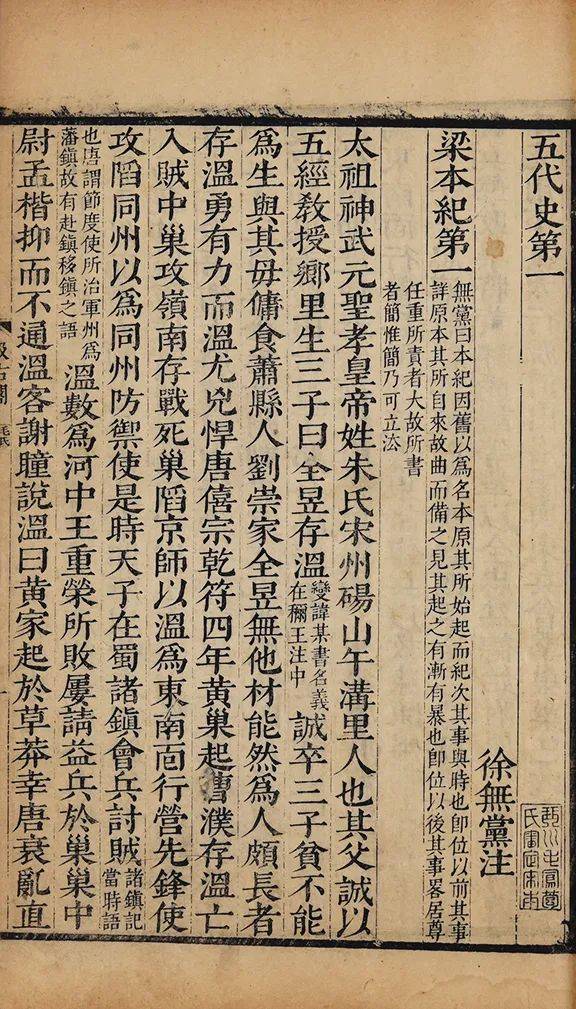 五代史第一
徐無黨注
梁本紀第一
無黨曰本紀因舊以爲名本原其所始起而紀次其事與時也卽位以前其事
詳原本其所自來故曲而備之見其起之有漸有暴也卽位以後其事畧居尊
任重所責者大故所書
者簡惟簡乃可立法
太祖神武元聖孝皇帝姓朱氏宋州碭山午溝里人也其父誠以
五經敎授鄉里生三子曰全昱存溫
變諱某書名義
在稱王注中
誠卒三子貧不能
爲生與其母傭食蕭縣人劉崇家全昱無他材能然爲人頗長者
存溫勇有力而溫尤兇悍唐僖宗乾符四年黃巢起曹濮存溫亡
入賊中巢攻嶺南存戰死巢陷京師以溫爲東南面行營先鋒使
攻陷同州以爲同州防禦使是時天子在蜀諸鎭會兵討賊
諸鎭記
當時語
也唐謂節度使所治軍州爲
藩鎭故有赴鎭移鎭之語
溫數爲河中王重榮所敗屢請益兵於巢巢中
尉孟楷抑而不通溫客謝瞳說溫曰黃家起於草莽幸唐衰亂直